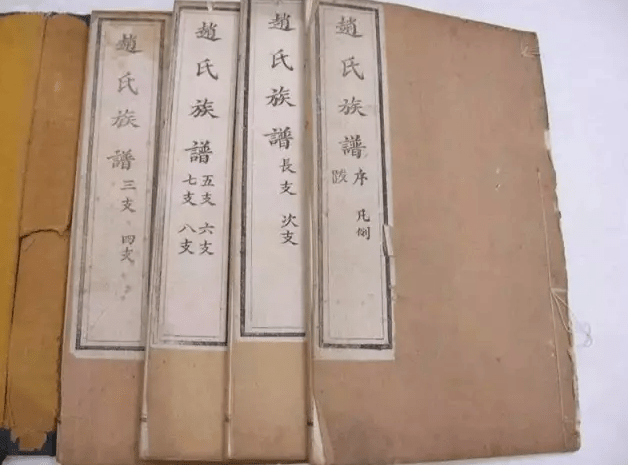 趙氏族譜
序 凡例
跋
趙氏族譜
長支 次支
趙氏族譜
五支 六支
七支 八支
趙氏族譜
三支 四支